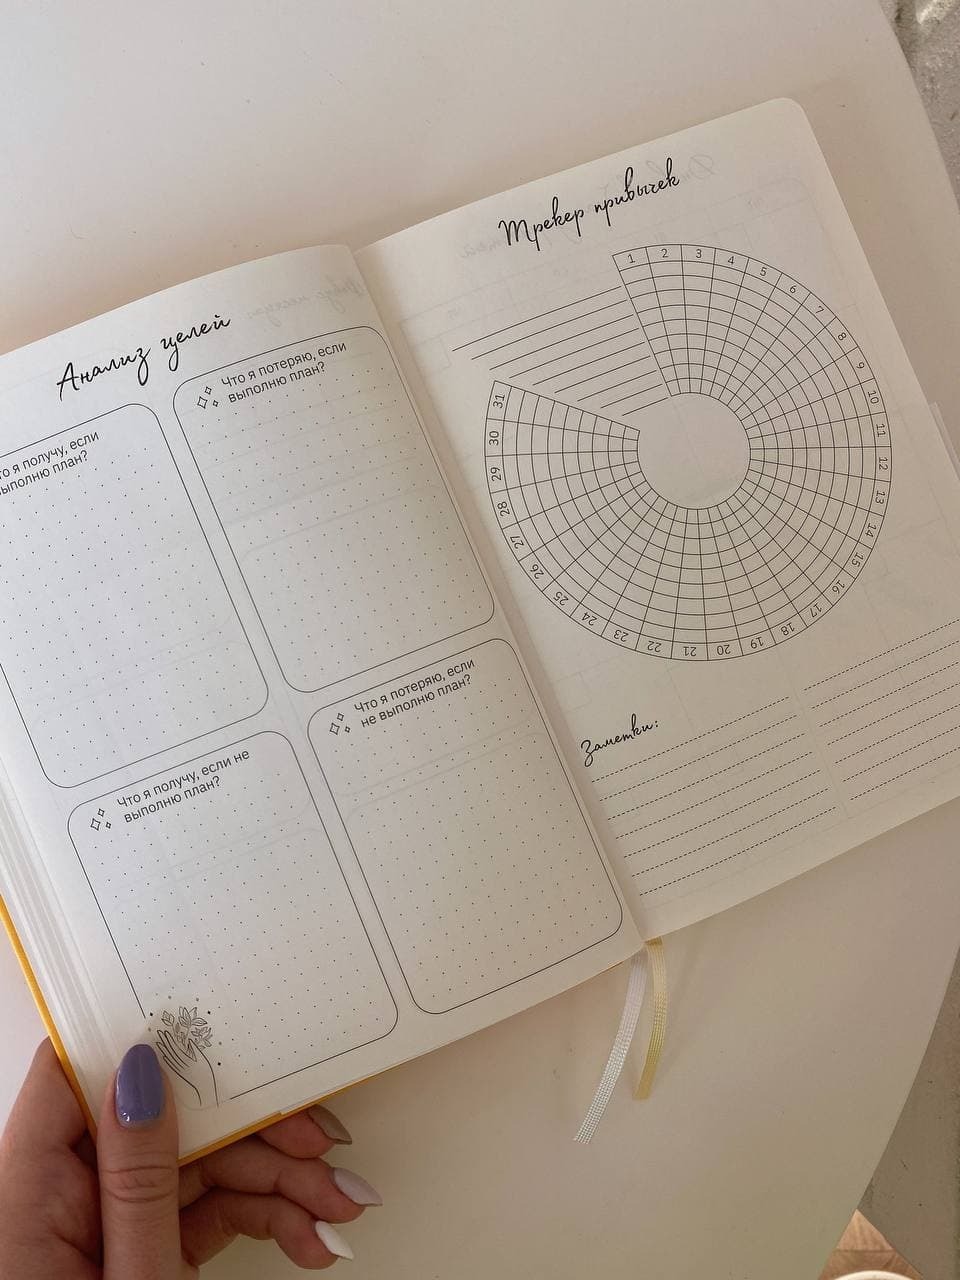 Анализ целей
то я получу, если
выполню план?
Что я потеряю, если
выполню план?
Что я получу, если не
выполню план?
Что я потеряю, если
не выполню план?
Трекер привычек
1
2
3
4
5
6
7
8
9
10
11
12
13
14
15
16
17
18
19
20
21
22
23
24
25
26
27
28
29
30
31
Заметки: